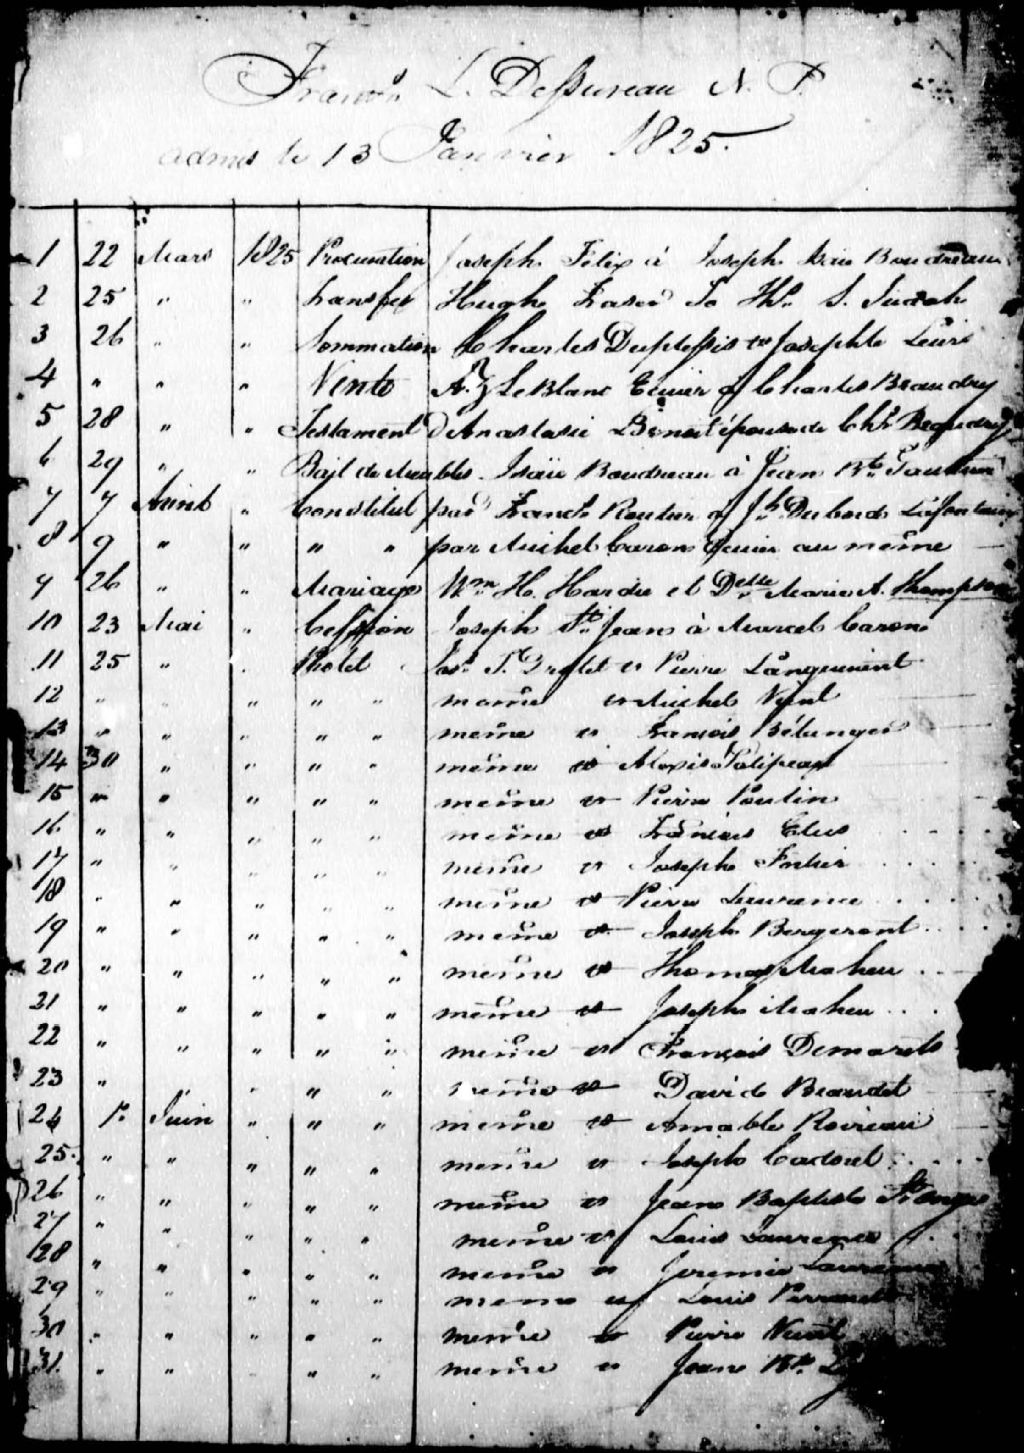 Franc̄s L. Dessureau N. P.
admis le 13 Janvier 1825.
1 22 Mars 1825 Procuration Joseph Félix à Joseph Isaïe Boudreau
2 25 " " Transfer Hugh Fraser To Ths. S. Judah
3 26 " " Sommation Charles Duplessis vs Josephte
4 " " " Vente A. Z. LeBlanc Ecuier & Charles Beaudry
5 28 " " Testament d'Anastasie Benoit épouse de Chs Beaudry
6 29 " " Bail de Meubles Isaïe Boudreau à Jean Bte
7 7 " Constitut par Franc̄s Routier & Jh. Dubord Lafontaine
8 9 " " " " par Michel Caron Ecuier au même
9 26 " " Mariage Wm. H. Hardie et Delle Marie A. Thompson
10 23 Mai " Cession Joseph St. Jean à Marcel Caron
11 25 " " Protet Jos. T. Drolet vs Pierre Languirand
12 " " " " " même vs Michel
13 " " " " " même vs François Bélanger
14 30 " " " " même vs Alexis
15 " " " " " même vs Pierre Poulin
16 " " " " " même vs François
17 " " " " " même vs Joseph Fortier
18 " " " " " même vs Pierre Laurence
19 " " " " " même vs Joseph Bergeront
20 " " " " " même vs Thomas Maheu
21 " " " " " même vs Joseph Maheu
22 " " " " " même vs François Demarets
23 " " " " même vs David Beaudet
24 1r Juin " " " même vs Amable
25. " " " " " même vs Joseph Cadoret
26 " " " " " même vs Jean Baptiste
27 " " " " " même vs Louis Laurence
28 " " " " " même vs Jeremie Laurence
29 " " " " " même vs Louis
30 " " " " " même vs Pierre
31. " " " " " même vs Jean Bte.